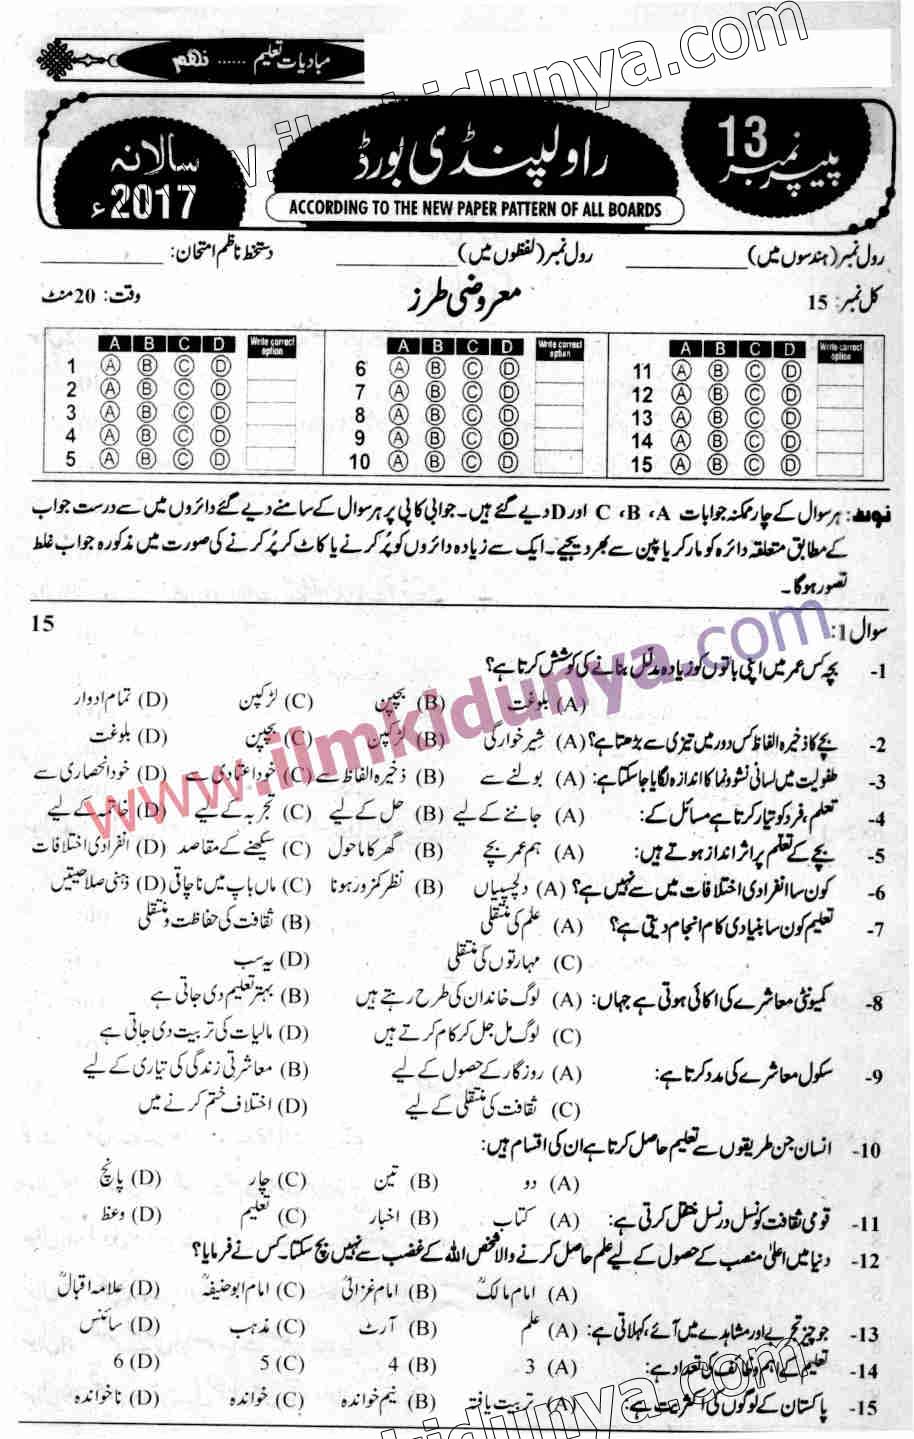 مبادیات تعلیم ...... نهم
پیپر نمبر 13
راولپنڈی بورڈ
سالانہ 2017ء
ACCORDING TO THE NEW PAPER PATTERN OF ALL BOARDS
رول نمبر (ہندسوں میں) __________ رول نمبر (لفظوں میں) __________ دستخط ناظم امتحان: __________
کل نمبر: 15 معروضی طرز وقت: 20 منٹ
A B C D Write correct option A B C D Write correct option A B C D Write correct option
1 A B C D 6 A B C D 11 A B C D
2 A B C D 7 A B C D 12 A B C D
3 A B C D 8 A B C D 13 A B C D
4 A B C D 9 A B C D 14 A B C D
5 A B C D 10 A B C D 15 A B C D
نوٹ: ہر سوال کے چار ممکنہ جوابات A، B، C اور D دیے گئے ہیں۔ جوابی کاپی پر ہر سوال کے سامنے دیے گئے دائروں میں سے درست جواب
کے مطابق متعلقہ دائرہ کو مارکر یا پین سے بھر دیجیے۔ ایک سے زیادہ دائروں کو پُر کرنے یا کاٹ کر پُر کرنے کی صورت میں مذکورہ جواب غلط
تصور ہوگا۔
سوال 1: 15
1- بچہ کس عمر میں اپنی باتوں کو زیادہ مدلل بنانے کی کوشش کرتا ہے؟
(A) بلوغت (B) بچپن (C) لڑکپن (D) تمام ادوار
2- بچے کا ذخیرہ الفاظ کس دور میں تیزی سے بڑھتا ہے؟ (A) شیر خوارگی (B) لڑکپن (C) بچپن (D) بلوغت
3- طفولیت میں لسانی نشوونما کا اندازہ لگایا جاسکتا ہے: (A) بولنے سے (B) ذخیرہ الفاظ سے (C) خود اعتمادی سے (D) خود انحصاری سے
4- تعلم، فرد کو تیار کرتا ہے مسائل کے: (A) جاننے کے لیے (B) حل کے لیے (C) تجربہ کے لیے (D) خاتمہ کے لیے
5- بچے کے تعلم پر اثرانداز ہوتے ہیں: (A) ہم عمر بچے (B) گھر کا ماحول (C) سیکھنے کے مقاصد (D) انفرادی اختلافات
6- کون سا انفرادی اختلافات میں سے نہیں ہے؟ (A) دلچسپیاں (B) نظر کمزور ہونا (C) ماں باپ میں ناچاقی (D) ذہنی صلاحیتیں
7- تعلیم کون سا بنیادی کام انجام دیتی ہے؟ (A) علم کی منتقلی (B) ثقافت کی حفاظت و منتقلی
(C) مہارتوں کی منتقلی (D) یہ سب
8- کمیونٹی معاشرے کی اکائی ہوتی ہے جہاں: (A) لوگ خاندان کی طرح رہتے ہیں (B) بہتر تعلیم دی جاتی ہے
(C) لوگ مل جل کر کام کرتے ہیں (D) مالیات کی تربیت دی جاتی ہے
9- سکول معاشرے کی مدد کرتا ہے: (A) روزگار کے حصول کے لیے (B) معاشرتی زندگی کی تیاری کے لیے
(C) ثقافت کی منتقلی کے لیے (D) اختلاف ختم کرنے میں
10- انسان جن طریقوں سے تعلیم حاصل کرتا ہے ان کی اقسام ہیں:
(A) دو (B) تین (C) چار (D) پانچ
11- قومی ثقافت کو نسل در نسل منتقل کرتی ہے: (A) کتاب (B) اخبار (C) تعلیم (D) وعظ
12- دنیا میں اعلیٰ منصب کے حصول کے لیے علم حاصل کرنے والا شخص اللہ کے غضب سے نہیں بچ سکتا۔ کس نے فرمایا؟
(A) امام مالکؒ (B) امام غزالیؒ (C) امام ابوحنیفہؒ (D) علامہ اقبالؒ
13- جو چیز تجربے اور مشاہدے میں آئے، کہلاتی ہے: (A) علم (B) آرٹ (C) مذہب (D) سائنس
14- تعلیم کے اہم وظائف کی تعداد ہے: (A) 3 (B) 4 (C) 5 (D) 6
15- پاکستان کے لوگوں کی اکثریت ہے: (A) تربیت یافتہ (B) نیم خواندہ (C) خواندہ (D) ناخواندہ
www.ilmkidunya.com